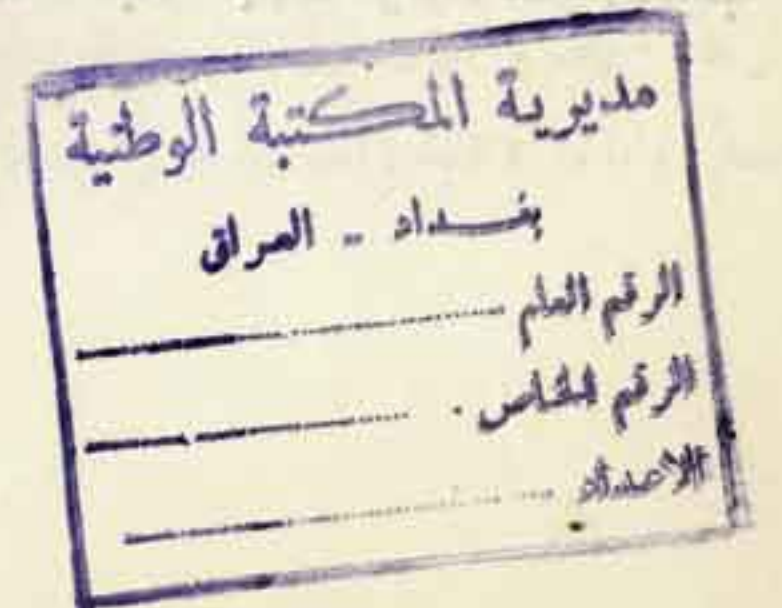 مديرية المكتبة الوطنية
بغـــداد - العراق
الرقم العام
الرقم الخاص
الاعداد